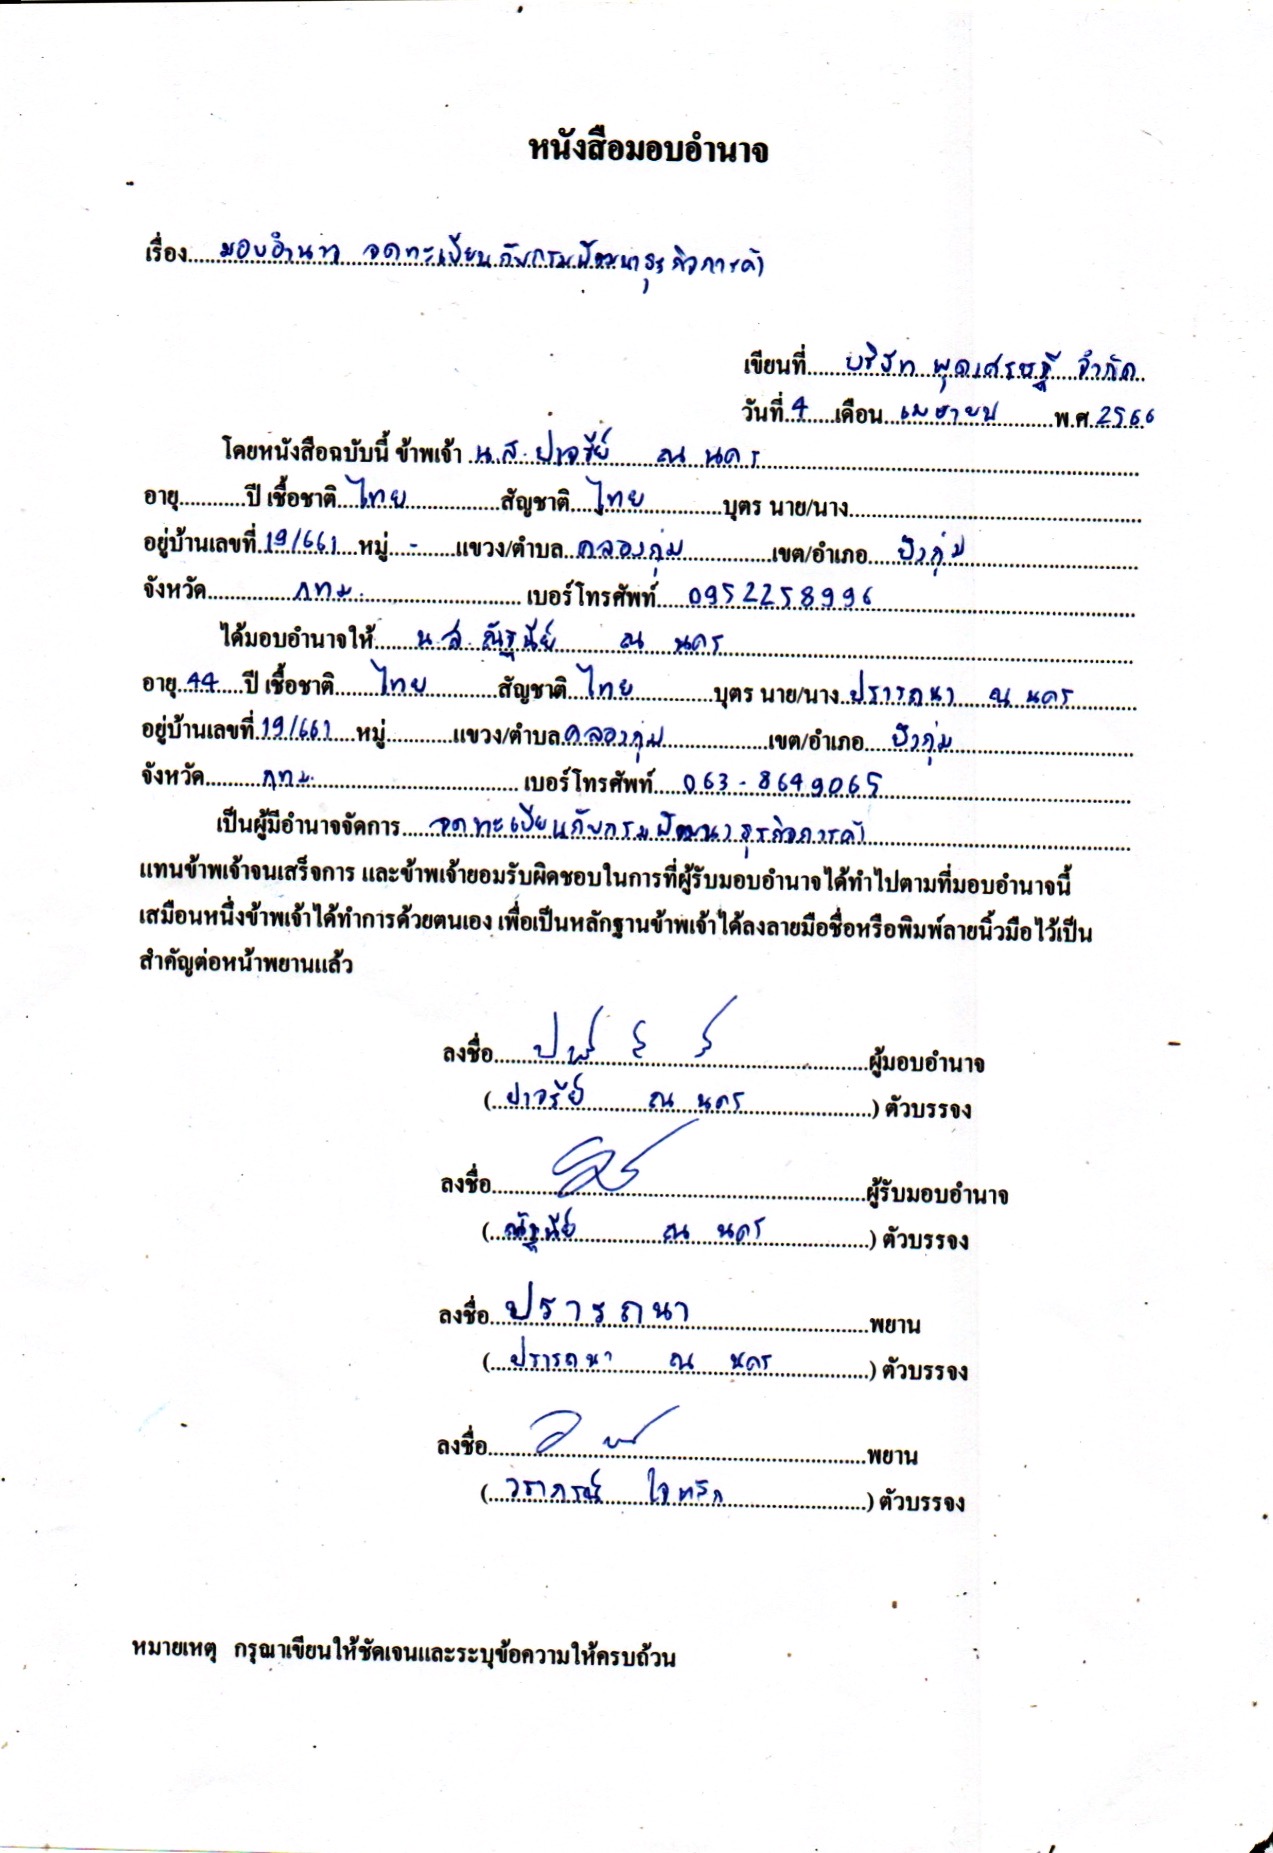 หนังสือมอบอำนาจ
เรื่อง มอบอำนาจ จดทะเบียนกับกรมพัฒนาธุรกิจการค้า
เขียนที่ บริษัท พุดเศรษฐี จำกัด
วันที่ 4 เดือน เมษายน พ.ศ. 2566
โดยหนังสือฉบับนี้ ข้าพเจ้า น.ส. ปาจรีย์ ณ นคร
อายุ ปี เชื้อชาติ ไทย สัญชาติ ไทย บุตร นาย/นาง
อยู่บ้านเลขที่ 19/661 หมู่ - แขวง/ตำบล คลองกุ่ม เขต/อำเภอ บึงกุ่ม
จังหวัด กทม. เบอร์โทรศัพท์ 0952258996
ได้มอบอำนาจให้ น.ส. ณัฐนีย์ ณ นคร
อายุ 44 ปี เชื้อชาติ ไทย สัญชาติ ไทย บุตร นาย/นาง ปรารถนา ณ นคร
อยู่บ้านเลขที่ 19/661 หมู่ แขวง/ตำบล คลองกุ่ม เขต/อำเภอ บึงกุ่ม
จังหวัด กทม. เบอร์โทรศัพท์ 063-8649065
เป็นผู้มีอำนาจจัดการ จดทะเบียนกับกรมพัฒนาธุรกิจการค้า
แทนข้าพเจ้าจนเสร็จการ และข้าพเจ้ายอมรับผิดชอบในการที่ผู้รับมอบอำนาจได้ทำไปตามที่มอบอำนาจนี้
เสมือนหนึ่งข้าพเจ้าได้ทำการด้วยตนเอง เพื่อเป็นหลักฐานข้าพเจ้าได้ลงลายมือชื่อหรือพิมพ์ลายนิ้วมือไว้เป็น
สำคัญต่อหน้าพยานแล้ว
ลงชื่อ ผู้มอบอำนาจ
( ปาจรีย์ ณ นคร ) ตัวบรรจง
ลงชื่อ ผู้รับมอบอำนาจ
( ณัฐนีย์ ณ นคร ) ตัวบรรจง
ลงชื่อ ปรารถนา พยาน
( ปรารถนา ณ นคร ) ตัวบรรจง
ลงชื่อ พยาน
( วราภรณ์ ) ตัวบรรจง
หมายเหตุ กรุณาเขียนให้ชัดเจนและระบุข้อความให้ครบถ้วน